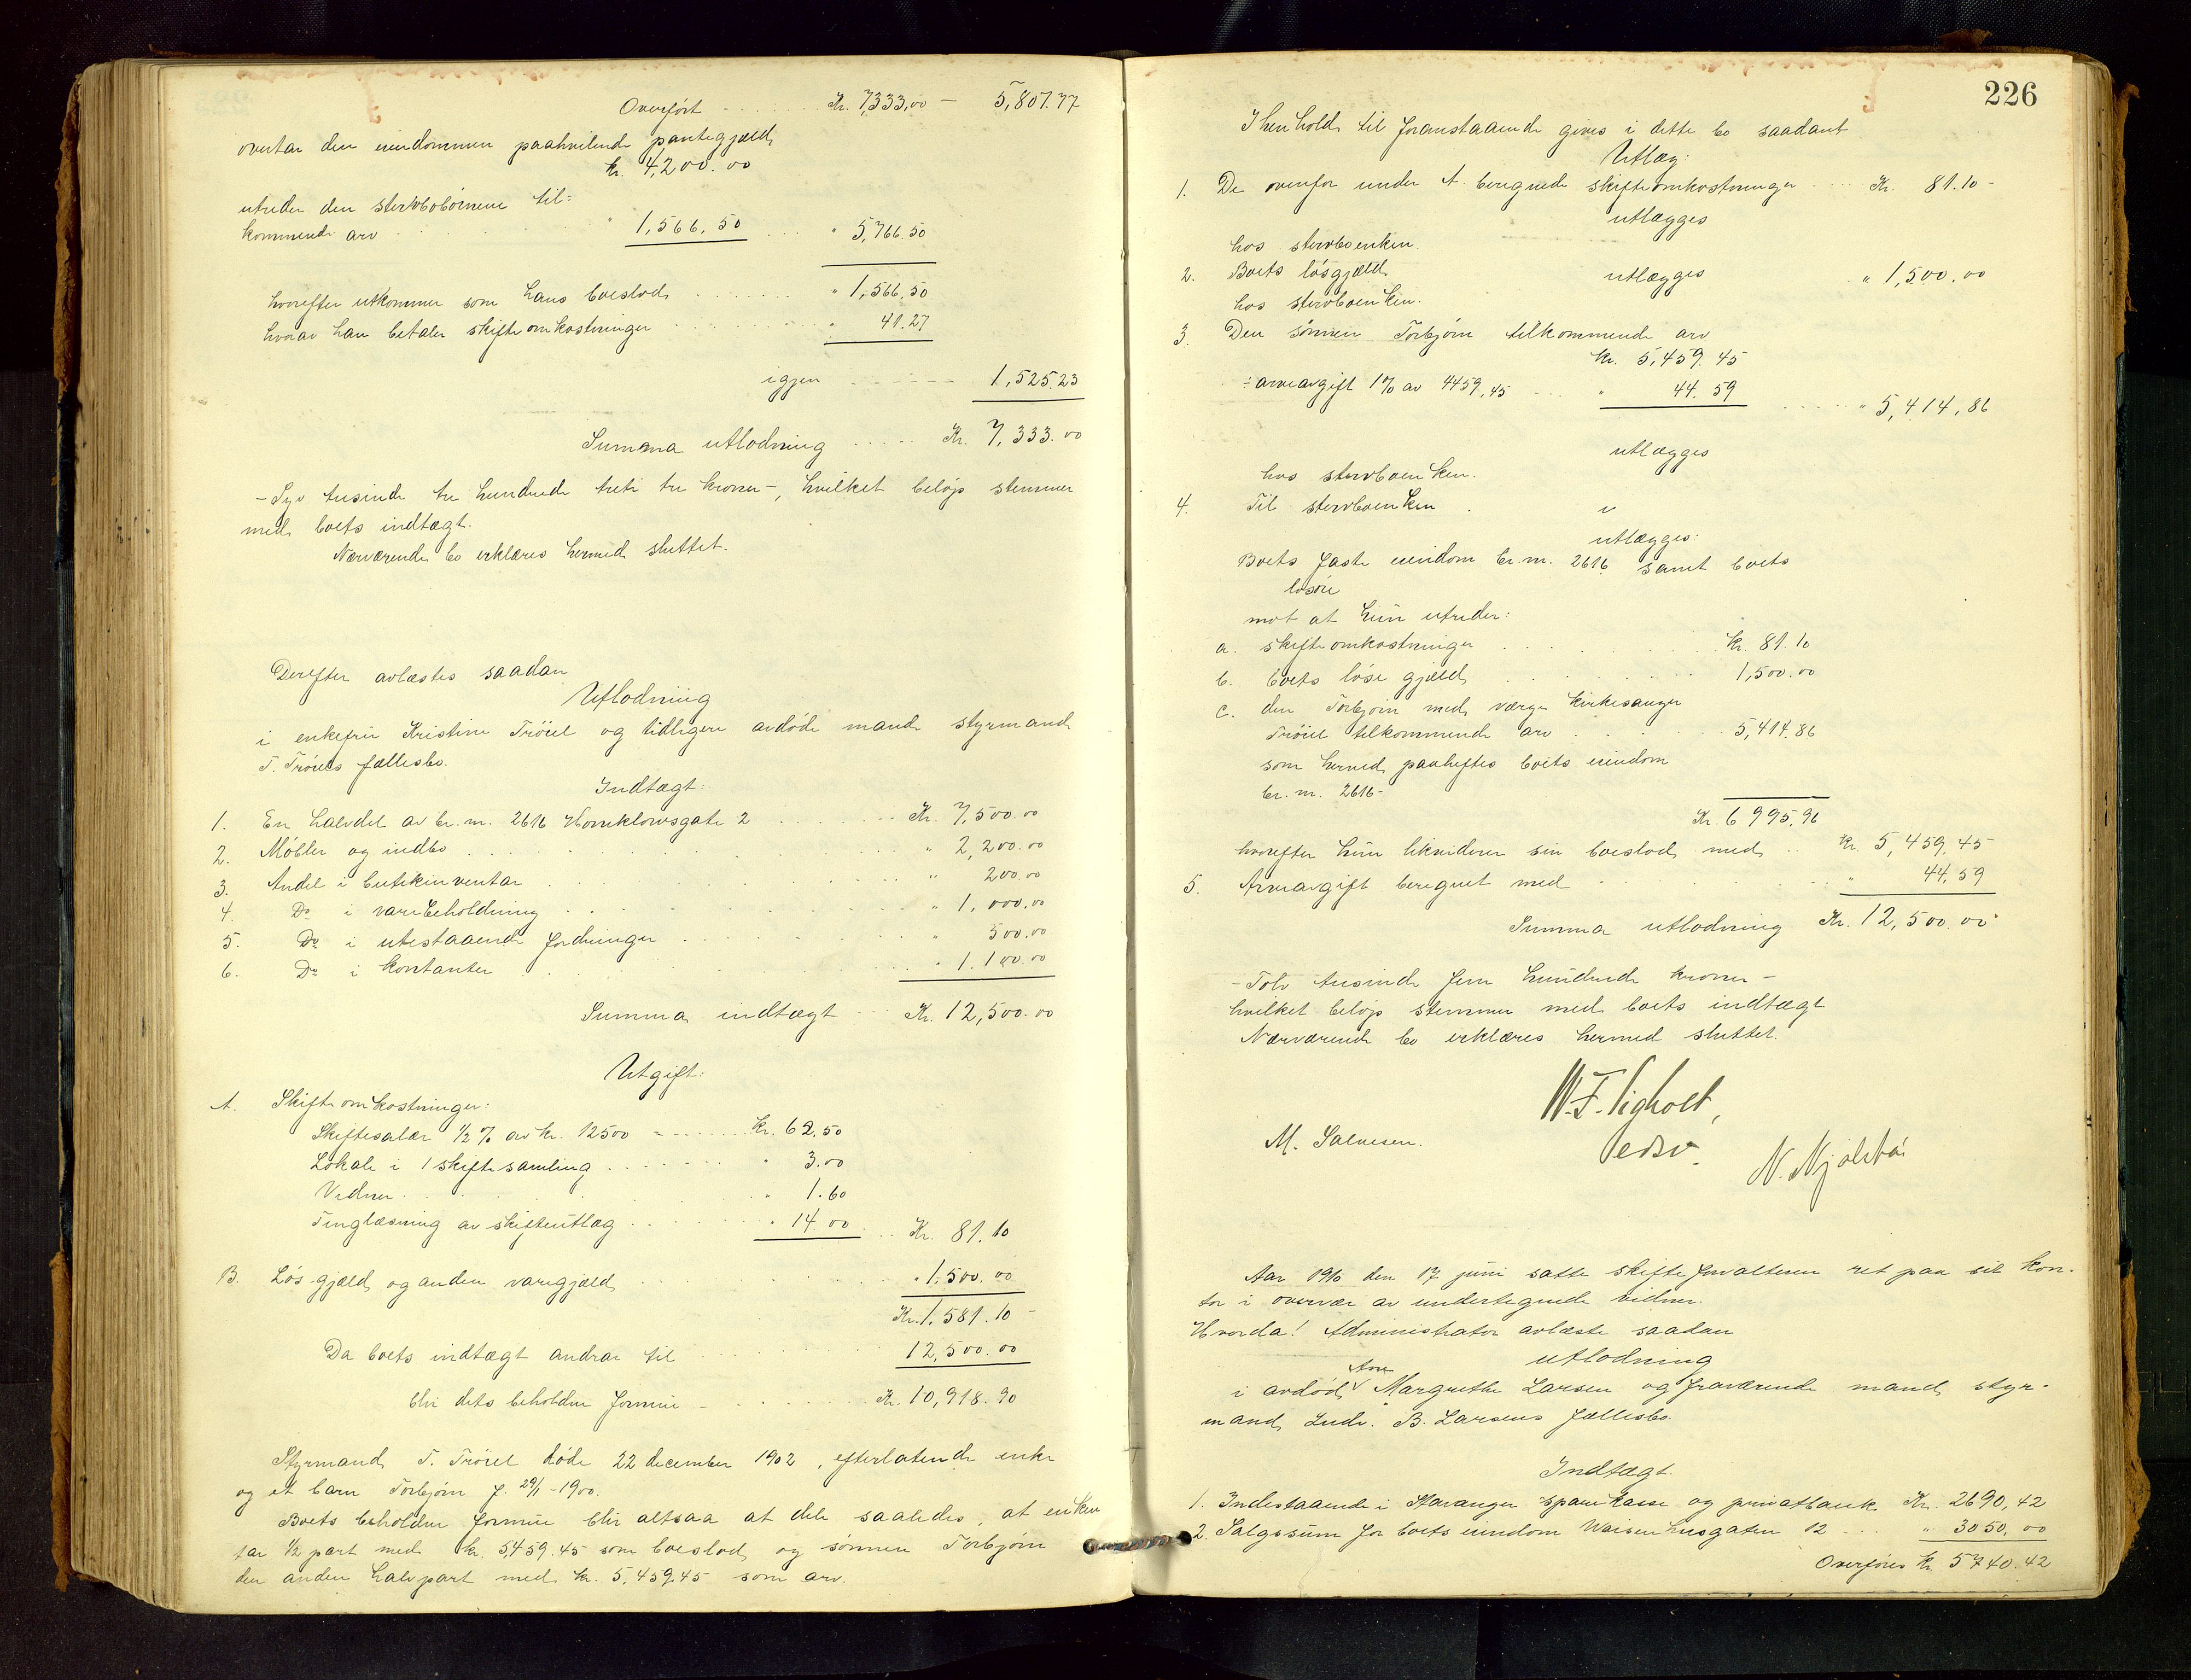 Overført Kr. 7,333,00 — 5,807.77
overtar den eiendommen paahvilende pantegjæld
kr. 4,200.00
utreder den stervbobørnene til=
kommende arv " 1,566,50 " 5,766.50
hvorefter utkommer som hans boeslod " 1,566,50
hvorav han betaler skifteomkostninger " 41.27
igjen 1,525.23
Summa utlodning Kr. 7,333.00
- Syv tusinde tre hundrede treti tre kroner -, hvilket beløp stemmer
med boets indtægt.
Nærværende bo erklæres hermed sluttet.
Derefter avlæstes saadan
Utlodning
i enkefru Kristine Trøiel og tidligere avdøde mand styrmand
T. Trøiels fællesbo.
Indtægt:
1. En halvdel av br. nr. 2616 Hornklowsgate 2 Kr. 7,500.00
2. Møbler og indbo " 2,200.00
3. Andel i butikinventar " 200.00
4. Do i varebeholdning " 1,000,00
5. Do i utestaaende fordringer " 500.00
6. Do i kontanter " 1.100.00
Summa indtægt Kr. 12,500.00
Utgift:
A. Skifteomkostninger:
Skiftesalær 1/2 % av kr. 12500 - Kr. 62.50
Lokale i 1 skiftesamling " 3.00
Vidner " 1.60
Tinglæsning av skifteutlæg " 14.00 Kr. 81.10
B. Løs gjæld og anden varegjæld " 1,500.00
Kr. 1,581.10 -
Da boets indtægt andrar til 12,500.00
blir dets beholdne formue Kr. 10,918.90
Styrmand T. Trøiel døde 22 december 1902, efterlatende enke
og et barn Torbjørn f. 29/1 - 1900.
Boets beholdne formue blir altsaa at dele saaledes, at enken
tar 1/2 part med kr. 5,459.45 som boeslod og sønnen Torbjørn
den anden halvpart med kr. 5,459.45 som arv.
226
I henhold til foranstaaende gives i dette bo saadant
Utlæg:
1. De ovenfor under A. beregnede skifteomkostninger Kr. 81.10 -
utlægges
hos stervboenken.
2. Boets løsgjæld utlægges " 1,500.00
hos stervboenken.
3. Den sønnen Torbjørn tilkommende arv
kr. 5,459.45
÷ arveavgift 1% av 4459,45 " 44.59 " 5,414,86
utlægges
hos stervboenken.
4. Til stervboenken
utlægges:
Boets faste eiendom br. nr. 2616 samt boets
løsøre
mot at hun utreder:
a. skifteomkostninger Kr. 81.10
b. boets løse gjæld 1,500.00
c. den Torbjørn med værge kirkesanger
Trøiel tilkommende arv 5,414.86
som herved paaheftes boets eiendom
br. nr. 2616 -
Kr. 6 995,96
hvorefter hun likviderer sin boeslod med Kr. 5,459.45
5. Arveavgift beregnet med " 44,59
Summa utlodning Kr. 12,500.00
- Tolv tusinde fem hundrede kroner -
hvilket beløp stemmer med boets indtægt
Nærværende bo erklæres hermed sluttet.
M. Salvesen.
N. Njølstå
Aar 1910 den 17 juni satte skifteforvalteren ret paa sit kon-
tor i overvær av undertegnede vidner.
Hvorda! Administrator avlæste saadan
utlodning
i avdød Ane Margrethe Larsen og fraværende mand styr-
mand Ludv. B. Larsens fællesbo.
Indtægt.
1. Indestaaende i Stavanger sparekasse og privatbank Kr. 2690,42
2. Salgssum for boets eiendom Waisenhusgaten 12 " 3050,00
Overføres Kr. 5740.42